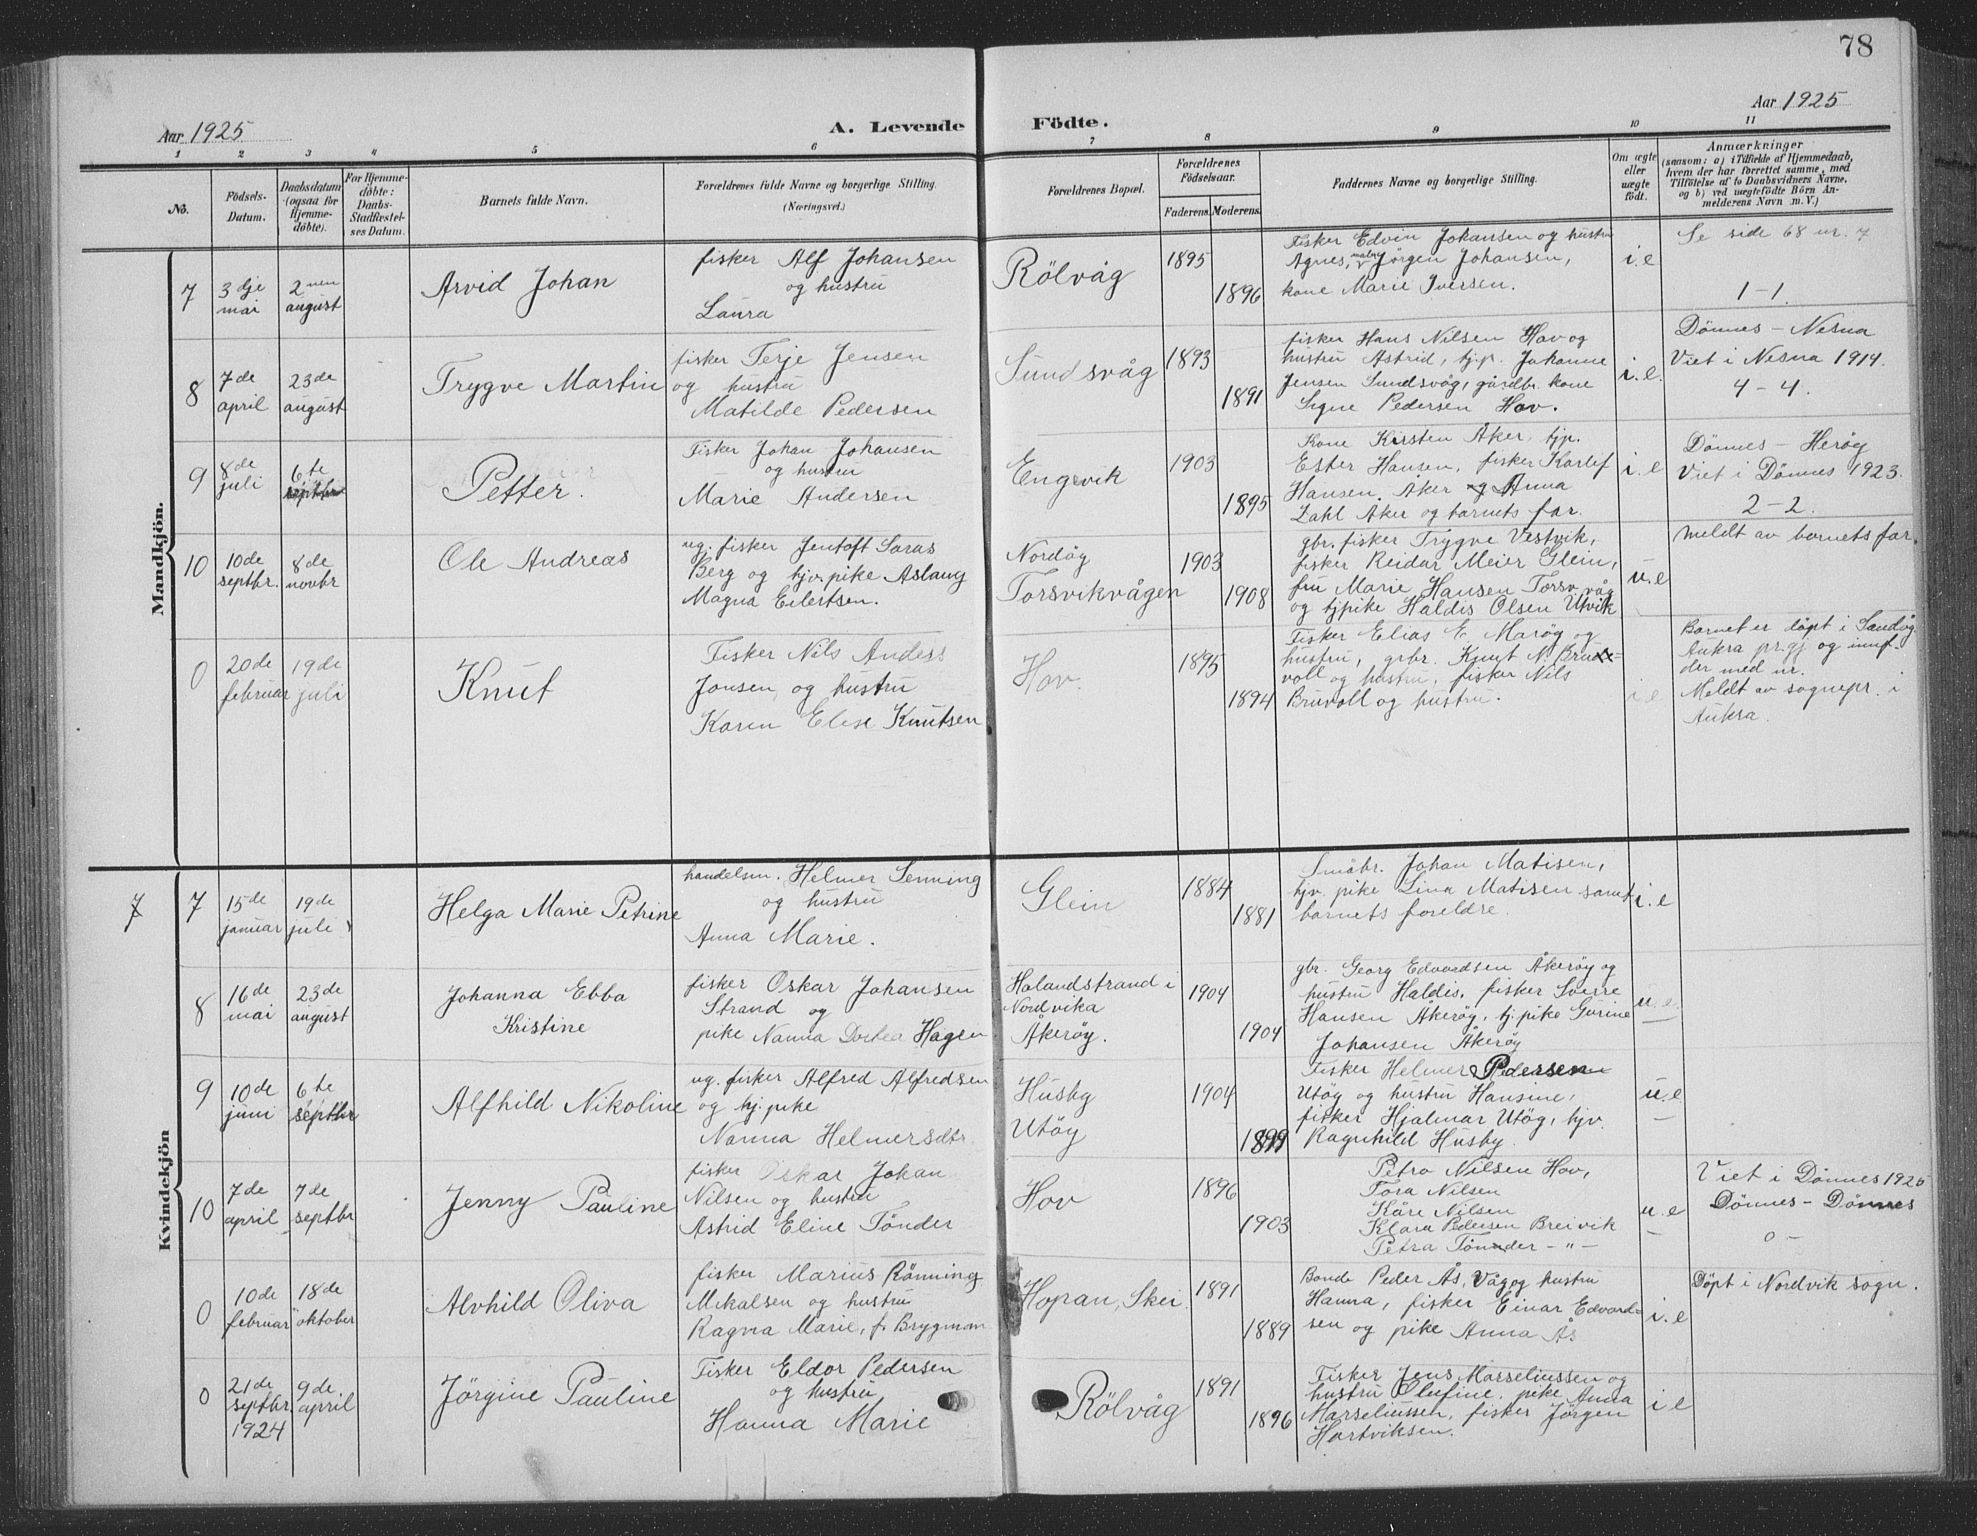 78
Aar 1925
A. Levende Födte.
Aar 1925
1 2 3 4 5 6 7 8 9 10 11
No.
Födsels-
Datum.
Daabsdatum
(ogsaa for
Hjemme-
döbte).
For Hjemme-
döbte:
Daabs-
Stadfæstel-
ses Datum.
Barnets fulde Navn.
Forældrenes fulde Navne og borgerlige Stilling.
(Næringsvei.)
Forældrenes Bopæl.
Forældrenes
Födselsaar.
Faderens.
Moderens.
Faddernes Navne og borgerlige Stilling.
Om ægte
eller
uægte
födt.
Anmærkninger
(saasom: a) i Tilfælde af Hjemmedaab,
hvem der har forrettet samme, med
Tilföielse af to Daabsvidners Navne,
og b) ved uægtefödte Börn An-
melderens Navn m. V.)
Mandkjön.
7
3dje
mai
2nen
august
Arvid Johan
fisker Alf Johansen
og hustru
Laura
Rölvåg
1895
1896
Fisker Edvin Johansen og hustru
Agnes, Jörgen Johansen,
kone Marie Iversen.
i.e
Se side 68 nr. 7
1-1.
8
7de
april
23de
august
Trygve Martin
fisker Terje Jensen
og hustru
Matilde Pedersen
Sundsvåg
1893
1891
fisker Hans Nilsen Hov og
hustru Astrid, tj.p. Johanne
Jensen Sundsvåg, gårdbr. kone
Signe Pedersen Hov.
i.e.
Dönnes - Nesna
Viet i Nesna 1914.
4-4.
9
8de
juli
6te
septbr
Petter.
Fisker Johan Johansen
og hustru
Marie Andersen
Engevik
1903
1895
Kone Kirsten Åker, tjp.
Ester Hansen, fisker Karlef
Hansen Åker og Anna
Zahl Aker og barnets far.
i.e
Dönnes - Heröy
Viet i Dönnes 1923.
2-2.
10
10de
septbr.
8de
novbr
Ole Andreas
ug. fisker Jentoft Saras
Berg og tjv. pike Aslaug
Magna Eilertsen.
Nordöy
Torsvikvågen
1903
1908
gbr. fisker Trygve Vestvik,
fisker Reidar Meier Glein,
fru Marie Hansen Torsv.våg
og tjpike Haldis Olsen Utvik
u.e
meldt av barnets far.
0
20de
februar
19de
juli
Knut
Fisker Nils Anders
Jonsen, og hustru
Karen Elise Knutsen
Hov.
1895
1894
Fisker Elias E. Maröy og
hustru, grbr. Knut N. Bru-
voll og hustru, fisker Nils
Bruvoll og hustru.
i.e
Barnet er döpt i Sandöy
Aukra pr.gj og innf.
der med nr.
Meldt av sognepr. i
Aukra.
Kvindekjön
7
7
15de
januar
19de
juli
Helga Marie Petrine
handelsm. Helmer Senning
og hustru
Anna Marie.
Glein
1884
1881
Småbr. Johan Matisen,
tjv. pike Lina Matisen samt
barnets foreldre.
i.e
8
16de
mai
23de
august
Johanna Ebba
Kristine
fisker Oskar Johansen
Strand og
pike Nanna Dortea Hagen
Halandstrand i
Nordvika
Åkeröy.
1904
1904
gbr. Georg Edvardsen Åkeröy og
hustru Haldis, fisker Sverre
Hansen Åkeröy, tj.pike Gurine
Johansen Åkeröy
u.e.
9
10de
juni
6te
septbr
Alfhild Nikoline
ug. fisker Alfred Alfredsen
og tj.pike
Nanna Helmersdtr.
Husby
Utöy
1904
1899
Fisker Helmer Pedersen
Utöy og hustru Hansine,
fisker Hjalmar Utöy, tjv.
Ragnhild Husby.
u.e
10
7de
april
7de
septbr
Jenny Pauline
fisker Oskar Johan
Nilsen og hustru
Astrid Eline Tönder
Hov
1896
1903
Petra Nilsen Hov,
Tora Nilsen
Kåre Nilsen
Klara Pedersen Breivik
Petra Tönder - " -
u.e
Viet i Dönnes 1926
Dönnes - Dönnes
0 -
0
10de
februar
18de
oktober
Alvhild Oliva
fisker Marius Rönning
Mikalsen og hustru
Ragna Marie, f. Brygman
Hopan, Skei.
1891
1889
Bonde Peder Ås, Våg og hustru
Hanna, fisker Einar Edvard-
sen og pike Anna Ås
i.e
Döpt i Nordvik sogn.
0
21de
septbr
1924
9de
april
Jörgine Pauline
Fisker Eldor Pedersen
og hustru
Hanna Marie
Rölvåg
1891
1896
Fisker Jens Marseliussen og
hustru Olufine, pike Anna
Marseliussen, fisker Jörgen
Hartviksen.
i e